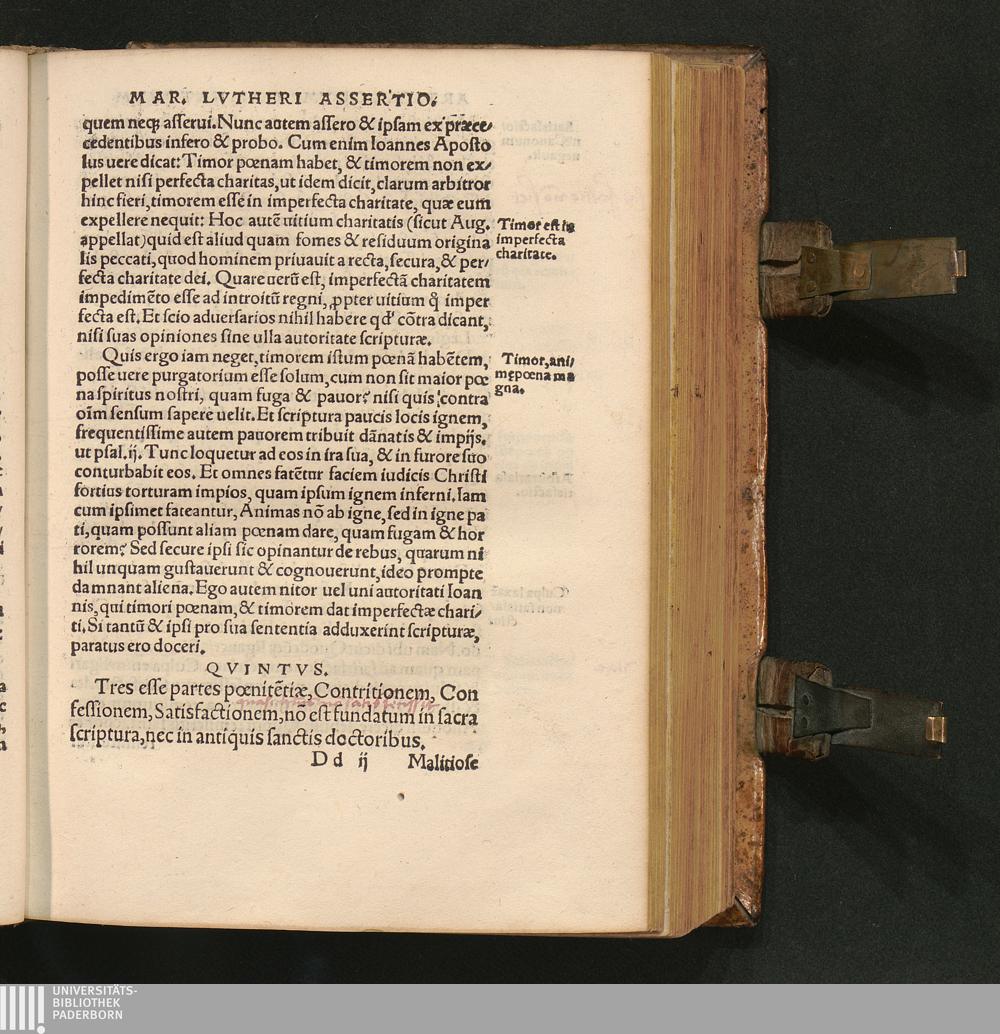 MAR. LVTHERI ASSERTIO.
quem neqꝫ asserui. Nunc autem assero & ipsam ex præce⸗
cedentibus infero & probo. Cum enim Ioannes Aposto
lus uere dicat: Timor pœnam habet, & timorem non ex⸗
pellet nisi perfecta charitas, ut idem dicit, clarum arbitror
hinc fieri, timorem esse in imperfecta charitate, quæ eum
expellere nequit: Hoc autẽ uitium charitatis (sicut Aug.
appellat) quid est aliud quam fomes & residuum origina
lis peccati, quod hominem priuauit a recta, secura, & per⸗
fecta charitate dei. Quare uerũ est, imperfectã charitatem
impedimẽto esse ad introitũ regni, ꝓpter uitium q̃ imper
fecta est. Et scio aduersarios nihil habere qd' cõtra dicant,
nisi suas opiniones sine ulla autoritate scripturæ.
Timor est in
imperfecta
charitate.
Quis ergo iam neget, timorem istum pœnã habẽtem,
posse uere purgatorium esse solum, cum non sit maior pœ
na spiritus nostri, quam fuga & pauor? nisi quis contra
oĩm sensum sapere uelit. Et scriptura paucis locis ignem,
frequentissime autem pauorem tribuit dãnatis & impijs.
ut psal. ij. Tunc loquetur ad eos in ira sua, & in furore suo
conturbabit eos. Et omnes fatẽtur faciem iudicis Christi
fortius torturam impios, quam ipsum ignem inferni. Iam
cum ipsimet fateantur, Animas nõ ab igne, sed in igne pa
ti, quam possunt aliam pœnam dare, quam fugam & hor
rorem? Sed secure ipsi sic opinantur de rebus, quarum ni
hil unquam gustauerunt & cognouerunt, ideo prompte
damnant aliena. Ego autem nitor uel uni autoritati Ioan
nis, qui timori pœnam, & timorem dat imperfectæ chari⸗
ti. Si tantũ & ipsi pro sua sententia adduxerint scripturæ,
paratus ero doceri.
Timor, ani⸗
mę pœna ma
gna.
QVINTVS.
Tres esse partes pœnitẽtiæ, Contritionem, Con
fessionem, Satisfactionem, nõ est fundatum in sacra
scriptura, nec in antiquis sanctis doctoribus.
Dd ij Malitiose
UNIVERSITÄTS-
BIBLIOTHEK
PADERBORN